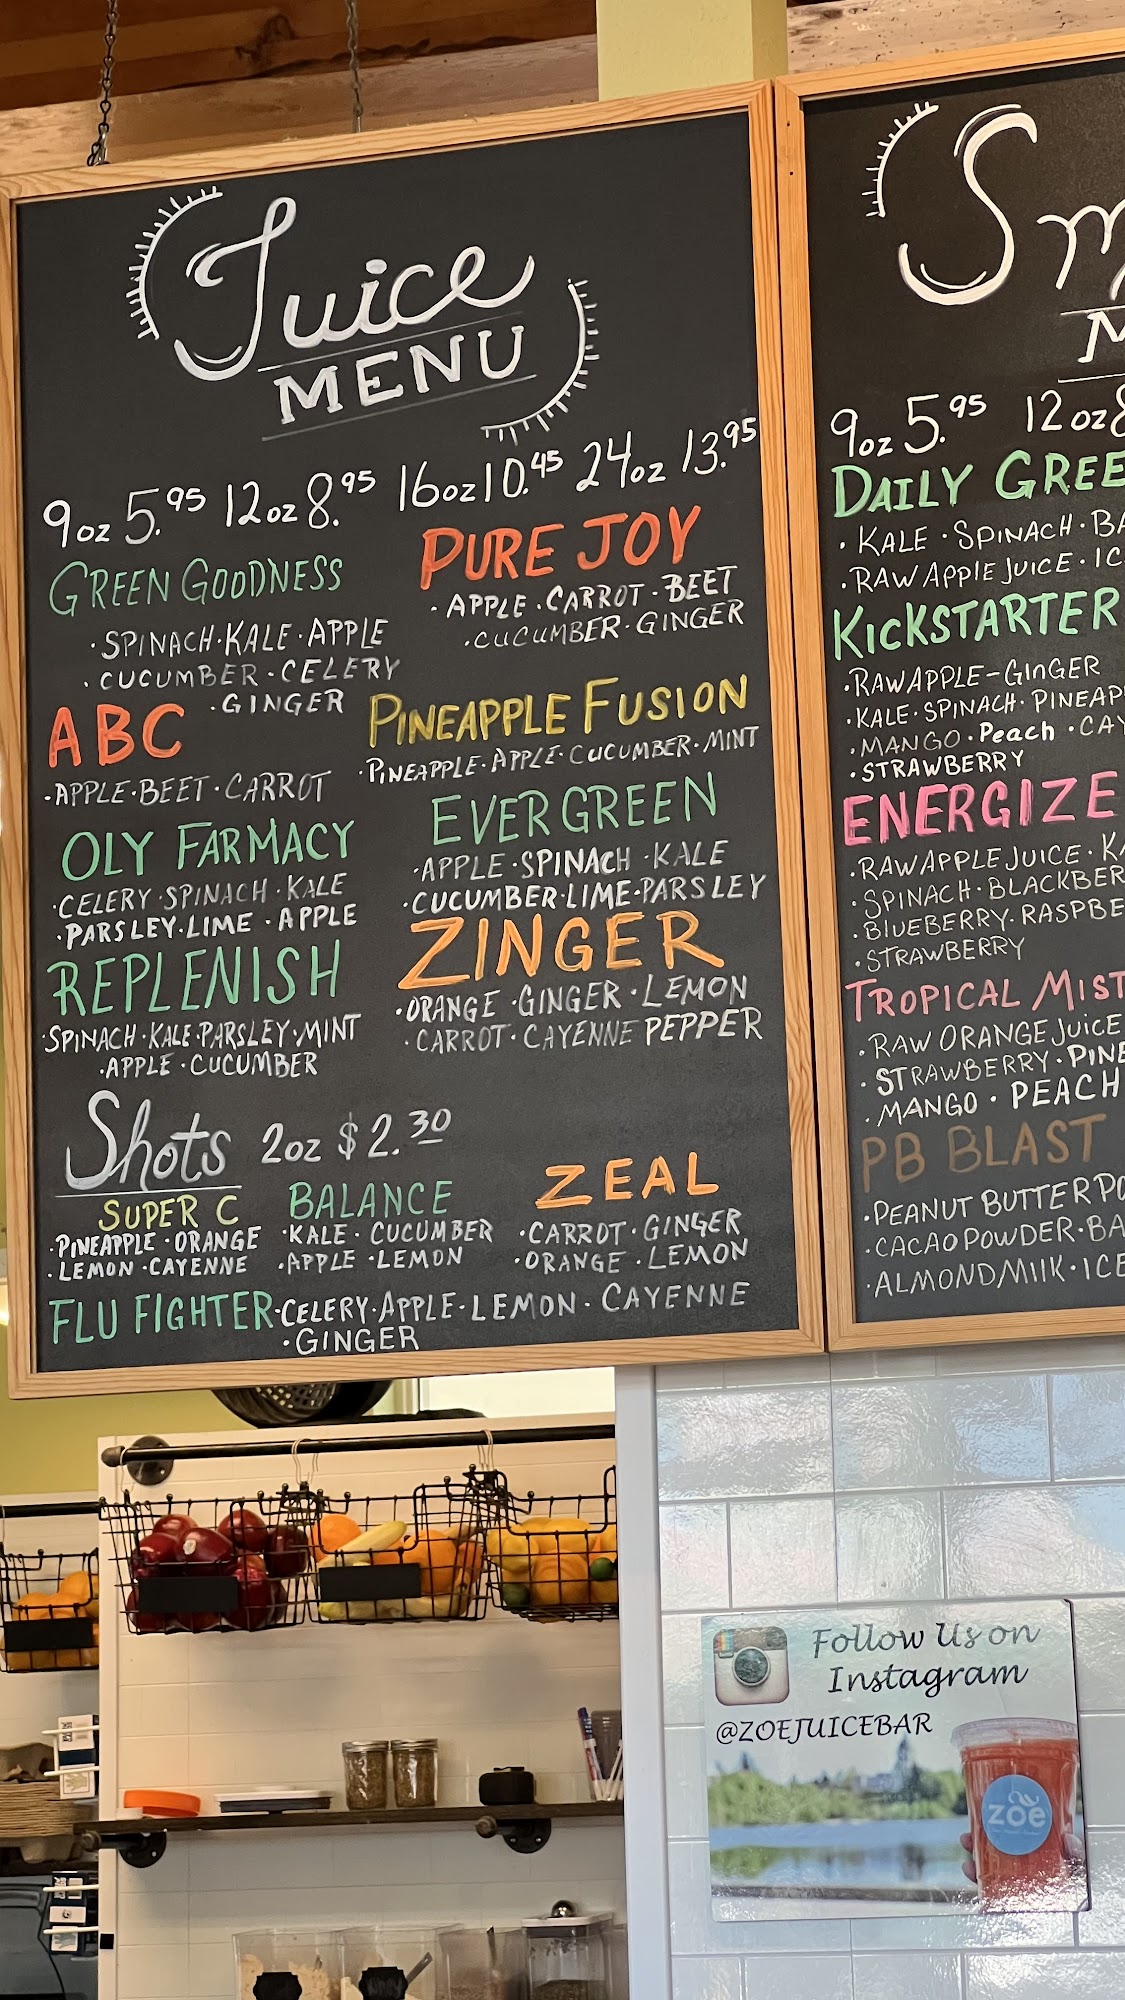 Juice
MENU
9oz 5.95 12oz 8.95 16oz 10.45 24oz 13.95
GREEN GOODNESS
·SPINACH·KALE·APPLE
·CUCUMBER·CELERY
·GINGER
ABC
·APPLE·BEET·CARROT
OLY FARMACY
·CELERY·SPINACH·KALE
·PARSLEY·LIME·APPLE
REPLENISH
·SPINACH·KALE·PARSLEY·MINT
·APPLE·CUCUMBER
PURE JOY
·APPLE·CARROT·BEET
·CUCUMBER·GINGER
PINEAPPLE FUSION
·PINEAPPLE·APPLE·CUCUMBER·MINT
EVERGREEN
·APPLE·SPINACH·KALE
·CUCUMBER·LIME·PARSLEY
ZINGER
·ORANGE·GINGER·LEMON
·CARROT·CAYENNE PEPPER
Shots 2oz $2.30
SUPER C
·PINEAPPLE·ORANGE
·LEMON·CAYENNE
BALANCE
·KALE·CUCUMBER
·APPLE·LEMON
ZEAL
·CARROT·GINGER
·ORANGE·LEMON
FLU FIGHTER·CELERY·APPLE·LEMON·CAYENNE
·GINGER
Sm
M
9oz 5.95 12oz 8
DAILY GREE
·KALE·SPINACH·BA
·RAW APPLE JUICE·IC
KICKSTARTER
·RAW APPLE-GINGER
·KALE·SPINACH·PINEAP
·MANGO·Peach·CAY
·STRAWBERRY
ENERGIZE
·RAW APPLE JUICE·KA
·SPINACH·BLACKBER
·BLUEBERRY·RASPBE
·STRAWBERRY
TROPICAL MIST
·RAW ORANGE JUICE
·STRAWBERRY·PINE
·MANGO·PEACH
PB BLAST
·PEANUT BUTTER PO
·CACAO POWDER·BA
·ALMOND MILK·ICE
Follow Us on
Instagram
@ZOEJUICEBAR
zoe